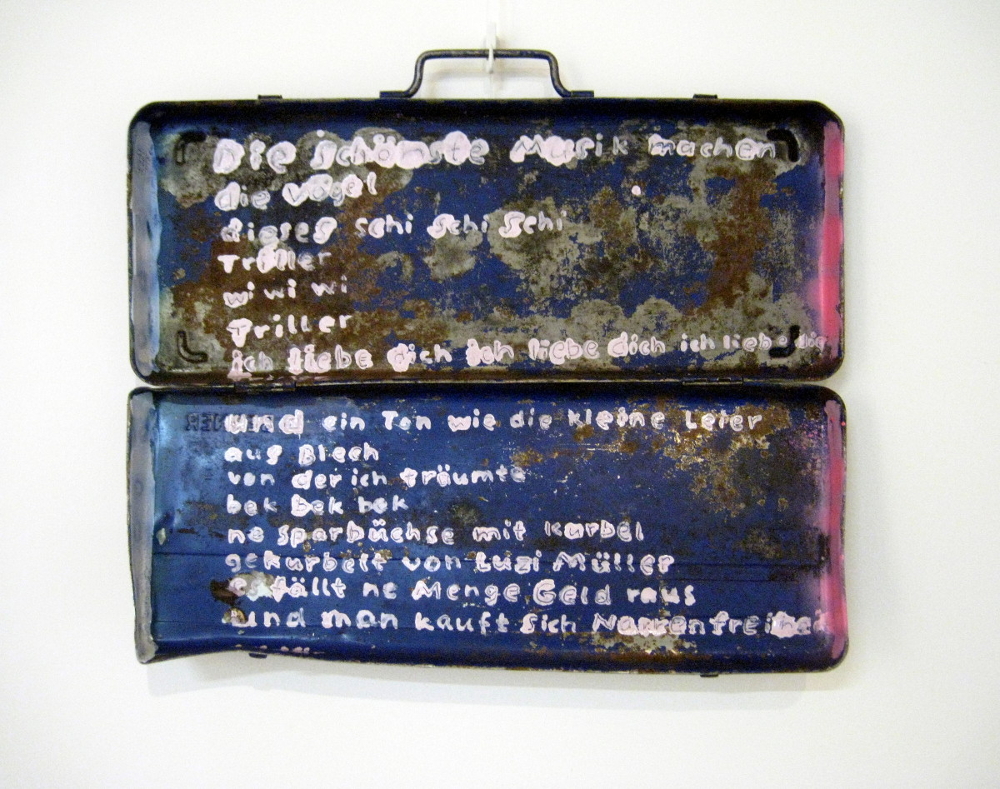 Die schönste Musik machen
die Vögel
dieses schi schi schi
Triller
wi wi wi
Triller
ich liebe dich ich liebe dich ich liebe die
und ein Ton wie die kleine Leier
aus Blech
von der ich träumte
bek bek bek
ne sparbüchse mit Kurbel
gekurbelt von Luzi Müller
es fällt ne Menge Geld raus
und man kauft sich Narrenfreiheit